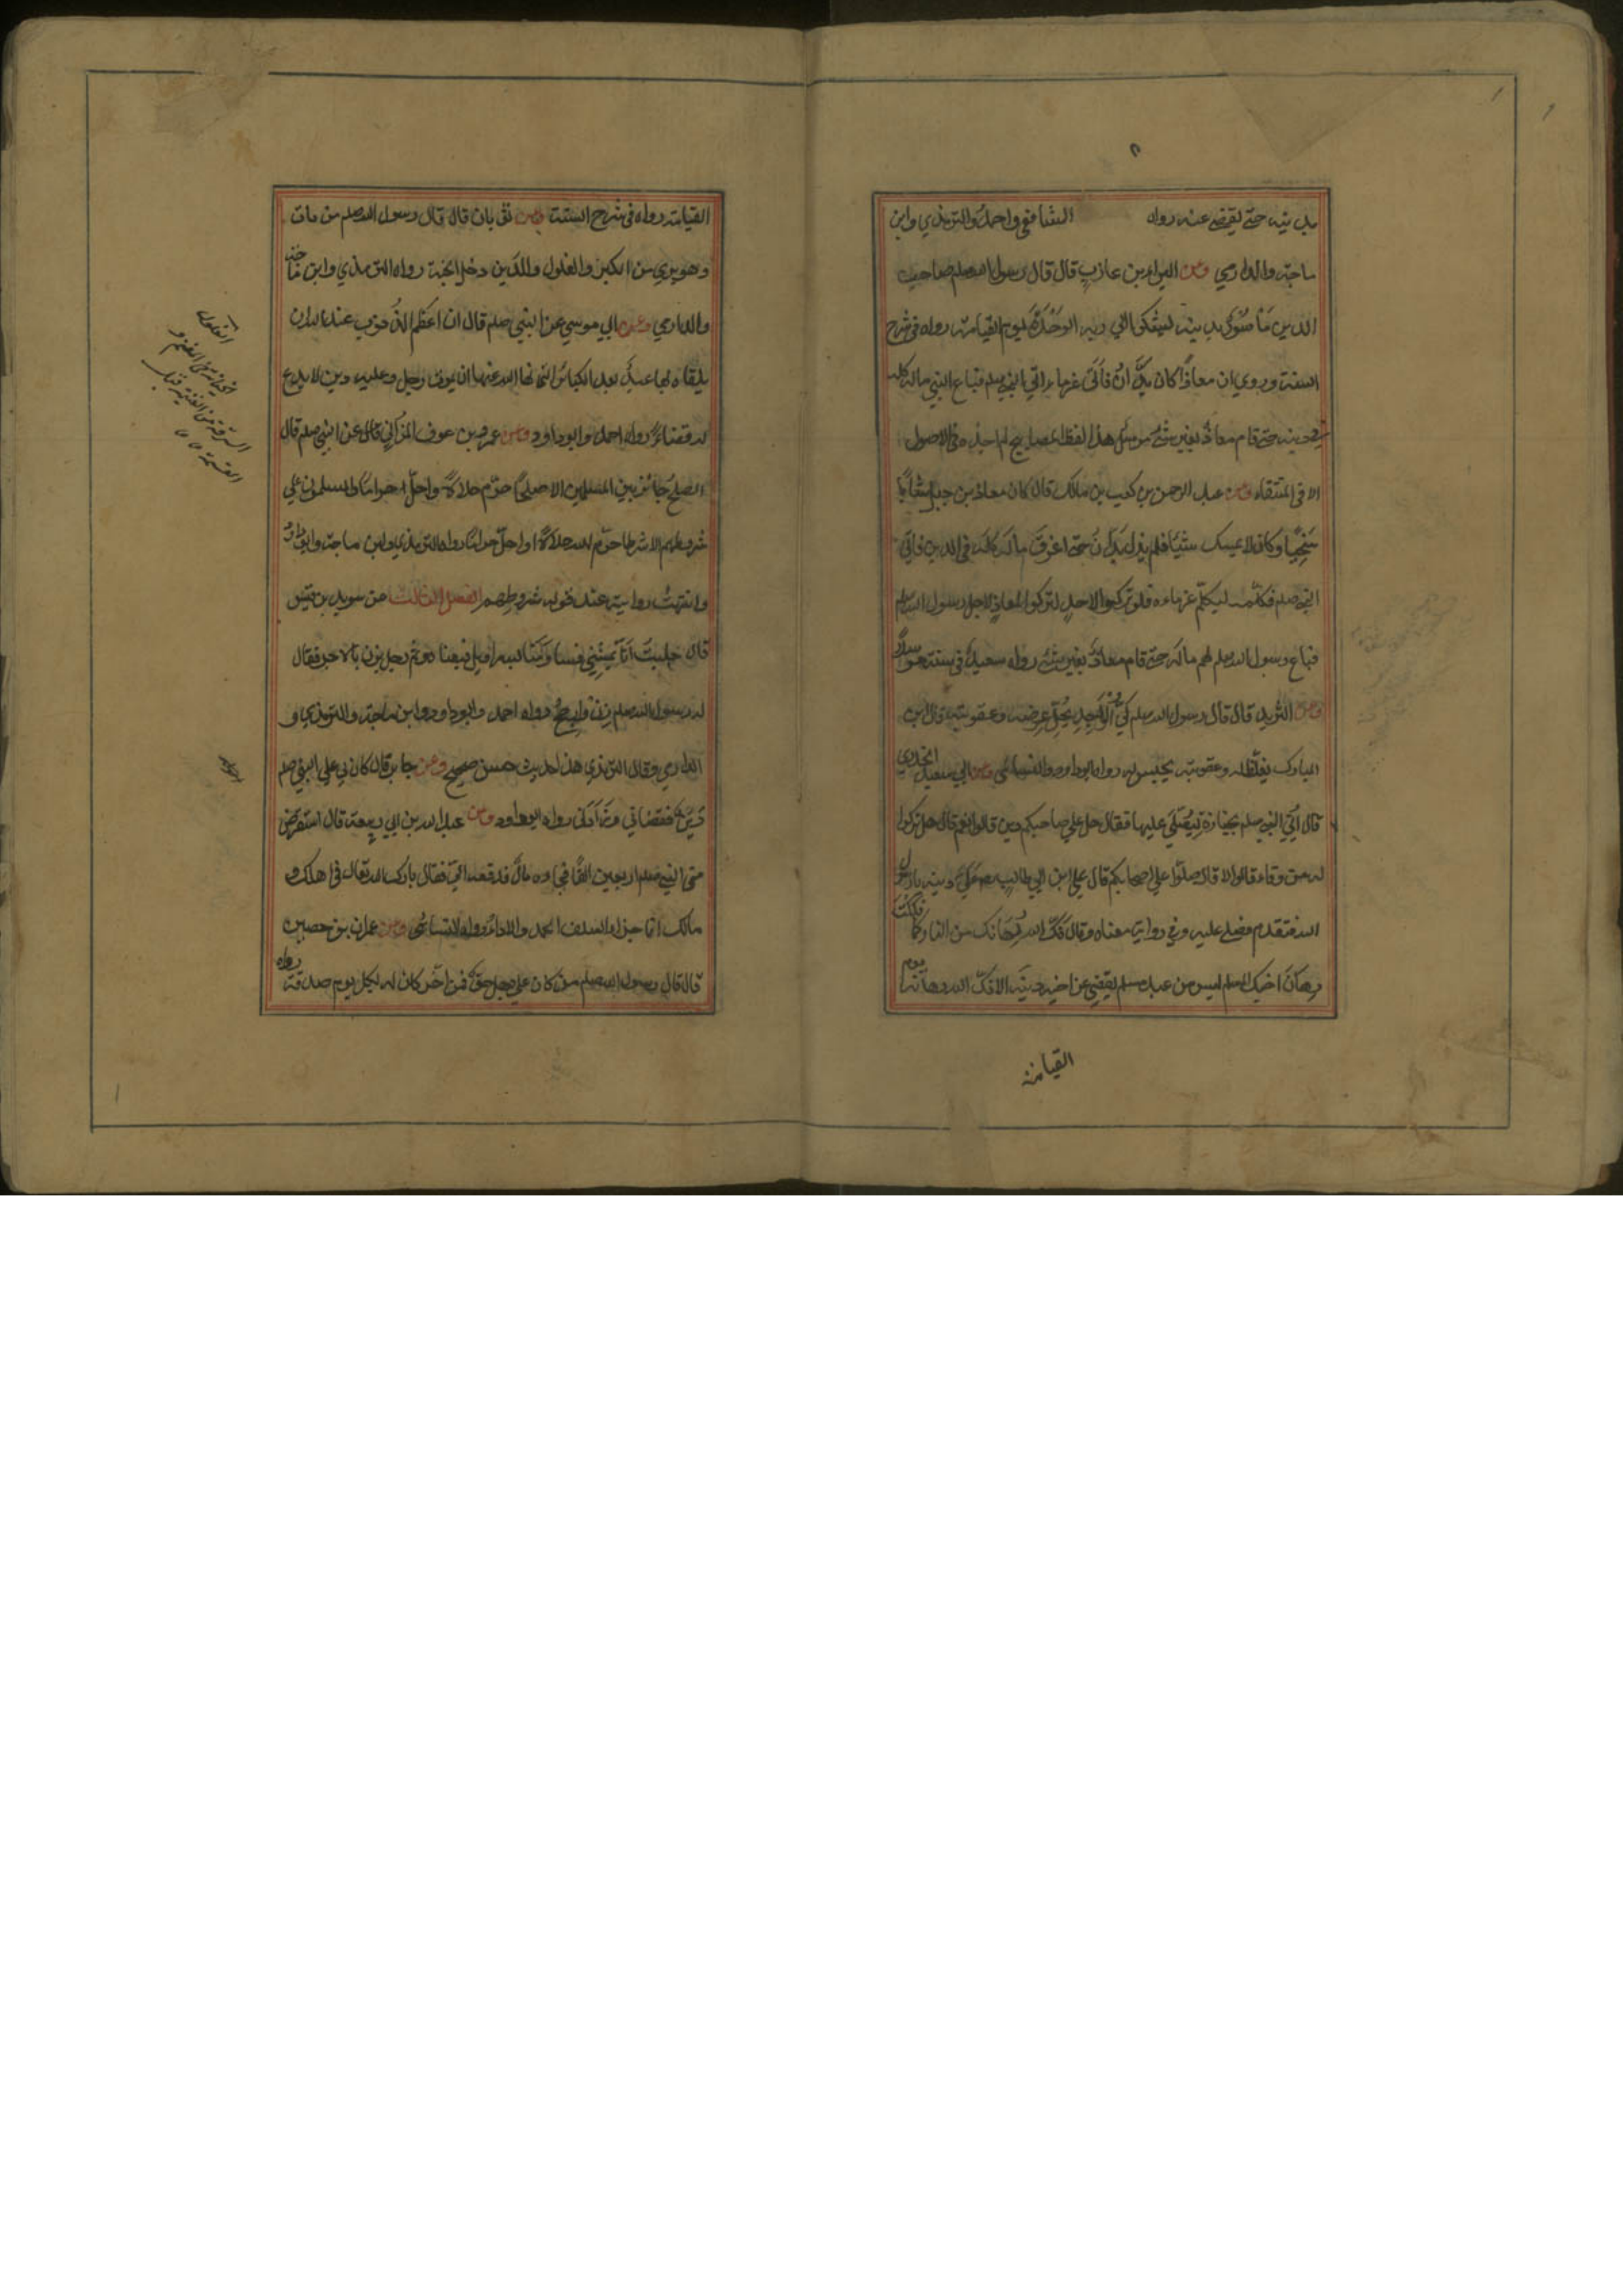 بدينه حتى يقضى عنه رواه الشافعي واحمد والترمذي وابن
ماجة والدارمي وعن البراء بن عازب قال قال رسول الله صلعم صاحب
الدين مأسور بدينه يشكو الي ربه الوحدة يوم القيامة رواه في شرح
السنة وروي ان معاذا كان يدّان فأتى غرماءه الي النبي صلعم فباع النبي ماله كله
في دينه حتى قام معاذ بغير شئ مرسل هذا لفظ المصابيح لم اجده في الاصول
الا في المنتقاء وعن عبد الرحمن بن كعب بن مالك قال كان معاذ بن جبل شابا
سخيا وكان لا يمسك شيئا فلم يزل يدّان حتى اغرق ماله كله في الدين فاتى
النبي صلعم فكلمه ليكلم غرماءه فلو تركوا لاحد لتركوا لمعاذ لاجل رسول الله صلعم
فباع رسول الله صلعم لهم ماله حتى قام معاذ بغير شئ رواه سعيد في سننه مرسلا
وعن الشريد قال قال رسول الله صلعم ليّ الواجد يحل عرضه وعقوبته قال ابن
المبارك يغلّظ له وعقوبته يحبس له رواه ابوداود والنسائى وعن ابي سعيد الخدري
قال اتي النبي صلعم بجنازة ليصلى عليها فقال هل علي صاحبكم دين قالوا نعم قال هل ترك
له من وفاء قالوا لا قال صلوا علي صاحبكم قال علي ابن ابي طالب علي دينه يا رسول
الله فتقدم فصلي عليه وفي رواية معناه وقال فك الله رهانك من النار كما فككت
رهان اخيك المسلم ليس من عبد مسلم يقضي عن اخيه دينه الا فك الله رهانه يوم
القيامة
القيامة رواه في شرح السنة وعن ثوبان قال قال رسول الله صلعم من مات
وهو بري من الكبر والغلول والدين دخل الجنة رواه الترمذي وابن ماجة
والدارمي وعن ابي موسي عن النبي صلعم قال ان اعظم الذنوب عند الله ان
يلقاه بها عبد بعد الكبائر التي نها الله عنها ان يموت رجل وعليه دين لا يدع
له قضاء رواه احمد وابوداود وعن عمرو بن عوف المزني عن النبي صلعم قال
الصلح جائز بين المسلمين الا صلحا حرّم حلالا واحلّ حراما والمسلمون علي
شروطهم الا شرطا حرّم حلالا او احلّ حراما رواه الترمذي وابن ماجة وابوداود
وانتهت روايته عند قوله شروطهم الفصل الثالث عن سويد بن قيس
قال جلبت انا
رسول الله صلعم زن وارجح رواه احمد وابوداود وابن ماجة والترمذي و
الدارمي وقال الترمذي هذا حديث حسن صحيح وعن جابر قال كان لي علي النبي صلعم
دين فقضاني وزادني رواه ابوداود وعن عبد الله بن ابي ربيعة قال استقرض
منى النبي صلعم اربعين الفا فجاءه مال فدفعه اليّ فقال بارك الله تعالى في اهلك و
مالك انما جزاء السلف الحمد والاداء رواه النسائى وعن عمران بن حصين
قال قال رسول الله صلعم من كان له علي رجل حق فمن اخّر كان له لكل يوم صدقة رواه
الغلول